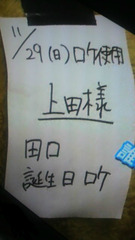 11/29(日)ロケ使用
上田様
田口
誕生日ロケ